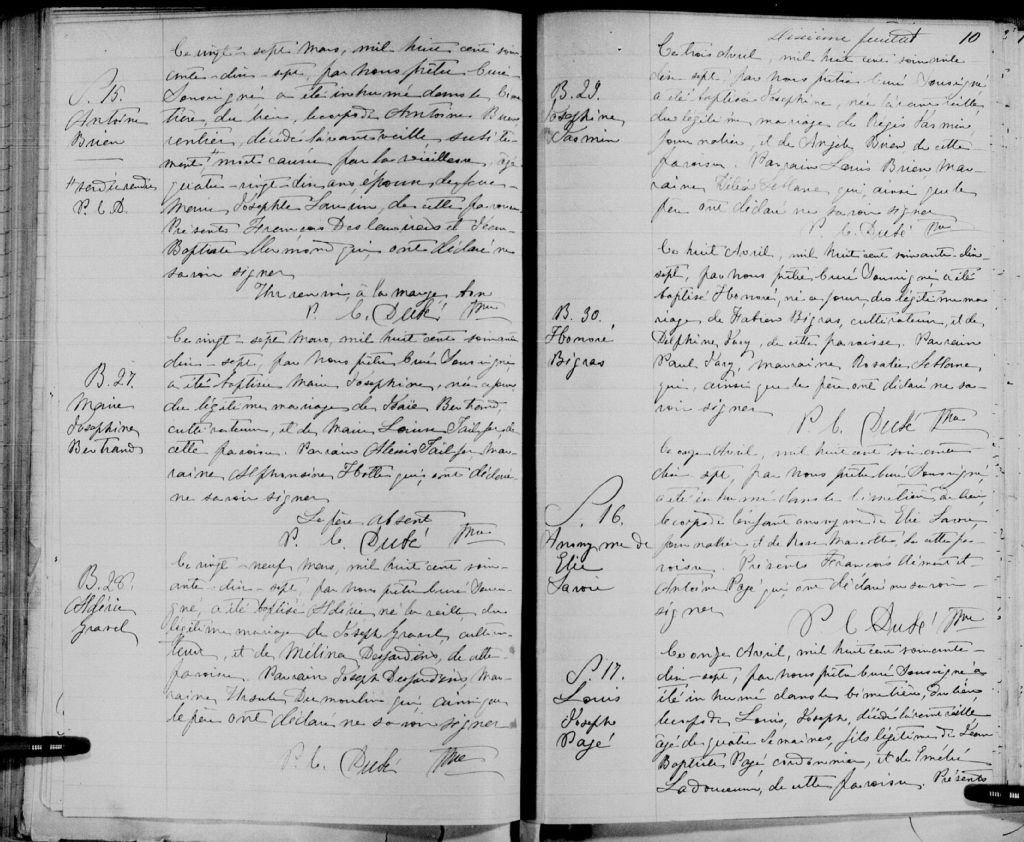 S. 15.
Antoine
Brien
# serdicendre
P. C. D.
Ce vingt-sept Mars, mil huit cent soix
ante-dix-sept, par Nous prêtre Curé
Soussigné a été inhumé dans le Cime
tière du lieu, le corps de Antoine Brien
rentier, décédé l'avant veille subite
ment # mort causée par la vieillesse, agé
quatre-vingt-dix ans, époux de feue
Marie Josephte Lauzin, de cette paroisse
Présents François Deslauriers et Jean
Baptiste Clermond qui ont déclaré ne
savoir signer
Un renvoi à la marge bon
P. C. Dubé Ptre
B. 27.
Marie
Josephine
Bertrand
Ce vingt-sept Mars, mil huit cent soixante
dix-sept, par Nous prêtre Curé Soussigné
a été baptisée Marie Josephine, née ce jour
du légitime mariage de Isaïe Bertrand,
cultivateur, et de Marie Louise Tailfer de
cette paroisse. Parrain Alexis Tailfer Mar
raine Alphonsine Hotte qui ont déclaré
ne savoir signer
Le père absent
P. C. Dubé Ptre
B. 28.
Aldéric
Gravel
Ce vingt-neuf Mars, mil huit cent soix
ante-dix-sept, par Nous prêtre Curé Soussi
gné, a été baptisé Aldéric né la veille, du
légitime mariage de Joseph Gravel cultiva
teur, et de Mélina Desjardins, de cette
paroisse. Parrain Joseph Desjardins, Mar
raine Desmoulins qui ainsi que
le père ont déclaré ne savoir signer
P. C. Dubé Ptre
Dixième feuillet 10
B. 29.
Josephine
Jasmin
Ce trois Avril, mil huit cent soixante
dix sept, par Nous prêtre Curé Soussigné
a été baptisée Josephine, née l'avant veille
du légitime mariage de Régis Jasmin,
journalier, et de Angèle Brien de cette
paroisse. Parrain Louis Brien Mar
raine Leblanc qui, ainsi que le
père ont déclaré ne savoir signer
P. C. Dubé Ptre
B. 30.
Honoré
Bigras
Ce huit Avril, mil huit cent soixante dix
sept, par Nous prêtre Curé Soussigné, a été
baptisé Honoré, né ce jour, du légitime ma
riage de Fabien Bigras, cultivateur, et de
Delphine Jary, de cette paroisse. Parrain
Paul Jary, marraine Rosalie Leblanc,
qui, ainsi que le père ont déclaré ne sa
voir signer
P. C. Dubé Ptre
S. 16.
Anonyme de
Elie
Lavoie
Ce onze Avril, mil huit cent soixante
dix sept, par Nous prêtre Curé Soussigné,
a été inhumé dans le Cimetière du lieu,
le corps de l'enfant anonyme de Elie Lavoie,
journalier et de Rose Masotte de cette pa
roisse. Présents François Clément et
Antoine Pagé qui ont déclaré ne savoir
signer
P. C. Dubé Ptre
S. 17.
Louis
Joseph
Pagé
Ce onze Avril, mil huit cent soixante
dix-sept, par Nous prêtre Curé Soussigné a
été inhumé dans le Cimetière, du lieu
le corps de Louis, Joseph, décédé l'avant veille
agé de quatre semaines, fils légitime de Jean
Baptiste Pagé cordonnier, et de Emélie
Ladouceur, de cette paroisse. Présents